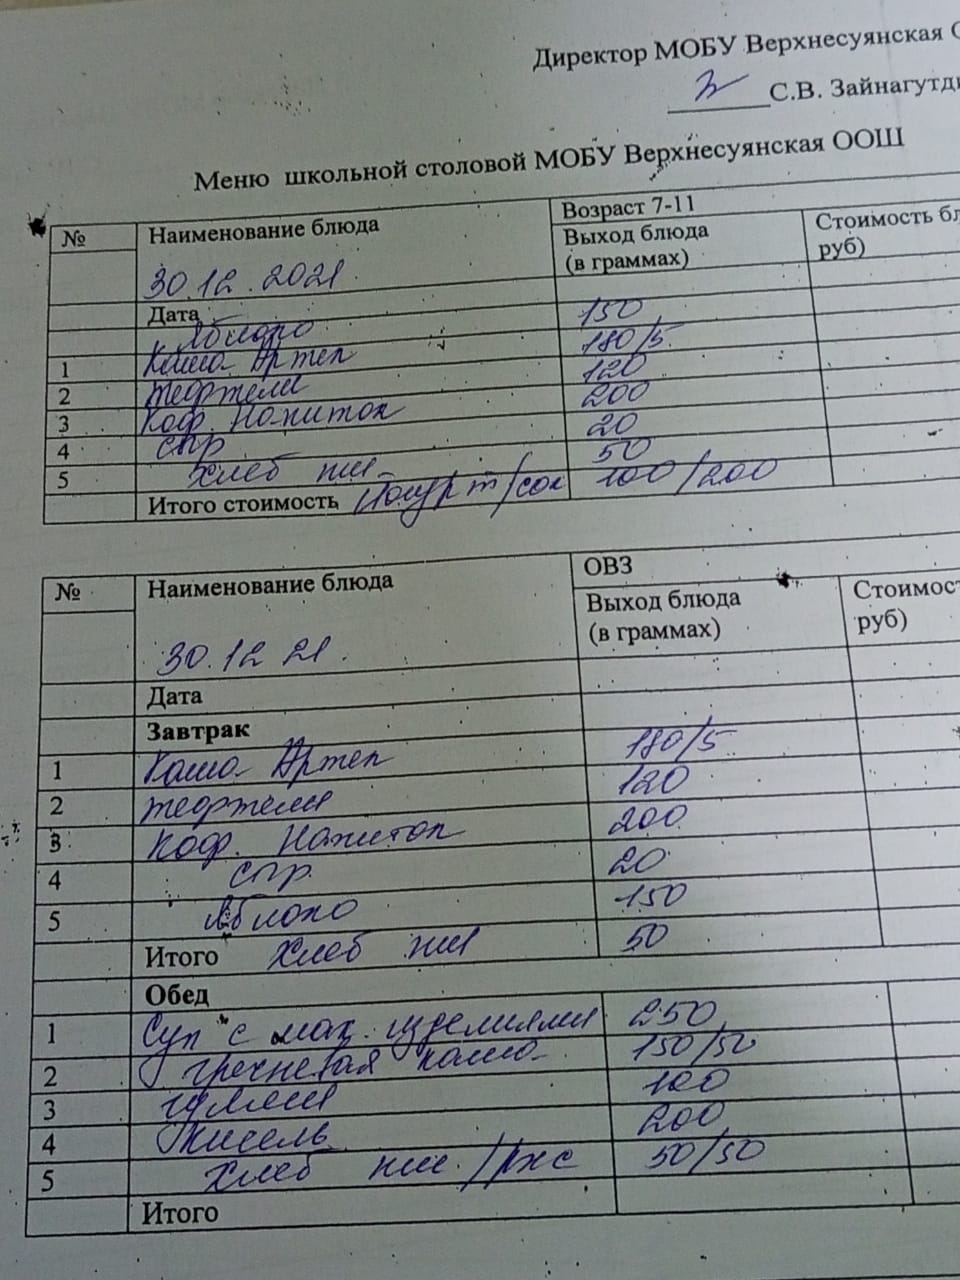 Директор МОБУ Верхнесуянская О
С.В. Зайнагутди
Меню школьной столовой МОБУ Верхнесуянская ООШ
№ Наименование блюда Возраст 7-11
Выход блюда (в граммах) Стоимость бл руб)
30.12.2021.
Дата
Яблоко 150
1 Каша Артек 180/5
2 тефтели 120
3 Коф. Напиток 200
4 сыр 20
5 Хлеб пш 50
Итого стоимость Йогурт/сок 100/200
№ Наименование блюда ОВЗ
Выход блюда (в граммах) Стоимос руб)
30.12 21.
Дата
Завтрак
1 Каша Артек 180/5
2 тефтели 120
3 Коф. Напиток 200
4 сыр. 20
5 Яблоко 150
Итого Хлеб пш 50
Обед
1 Суп с мак. изделиями 250
2 гречневая каша 150/50
3 гуляш 100
4 Кисель 200
5 Хлеб пш./рж 50/50
Итого